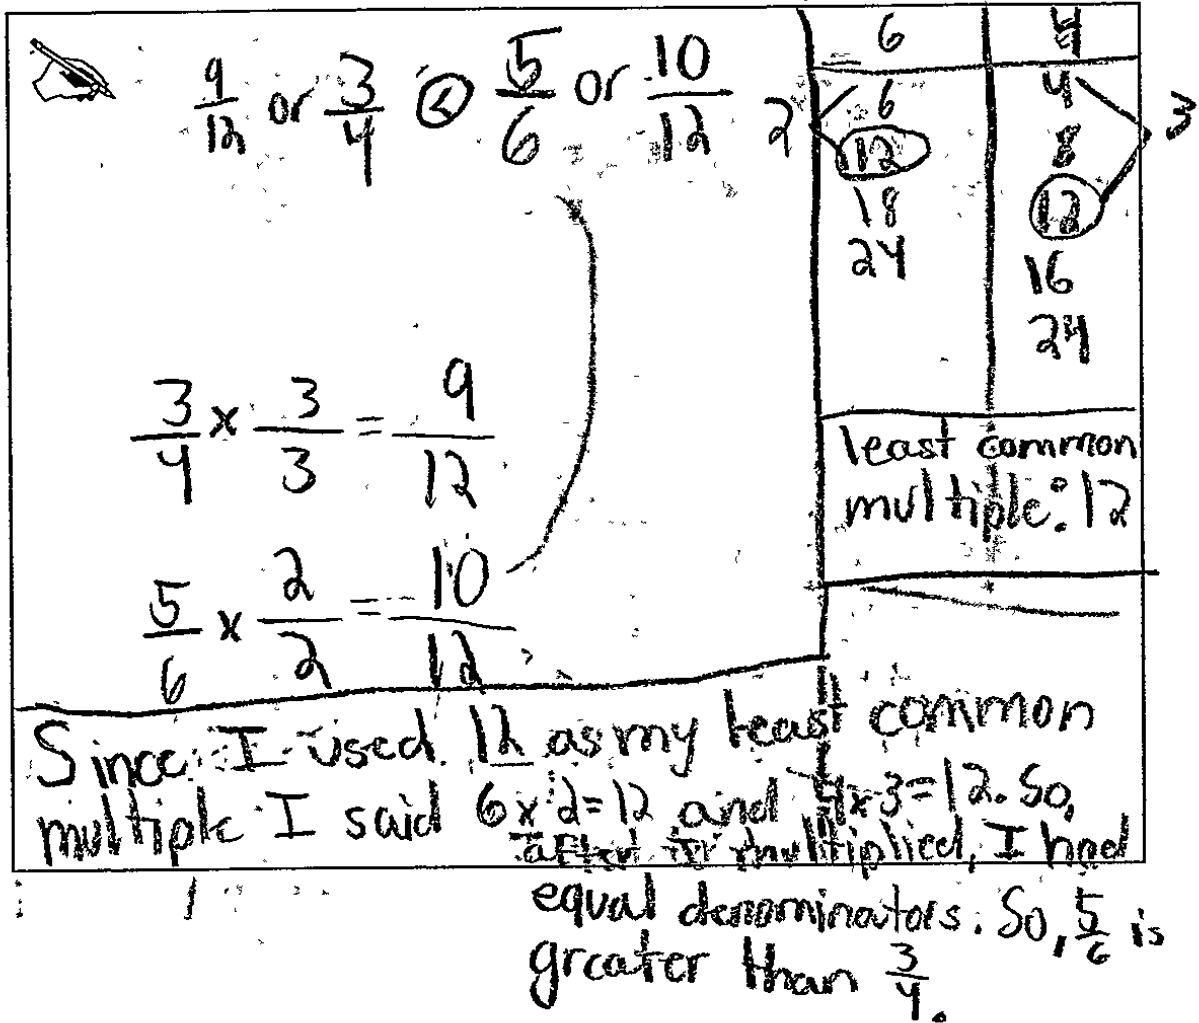 9/12 or 3/4 < 5/6 or 10/12
3/4 x 3/3 = 9/12
5/6 x 2/2 = 10/12
6 4
2 6 4 3
12 8
18 12
24 16
24
least common
multiple: 12
Since I used 12 as my least common
multiple I said 6 x 2 = 12 and 4 x 3 = 12. So,
after I multiplied, I had
equal denominators. So, 5/6 is
greater than 3/4.